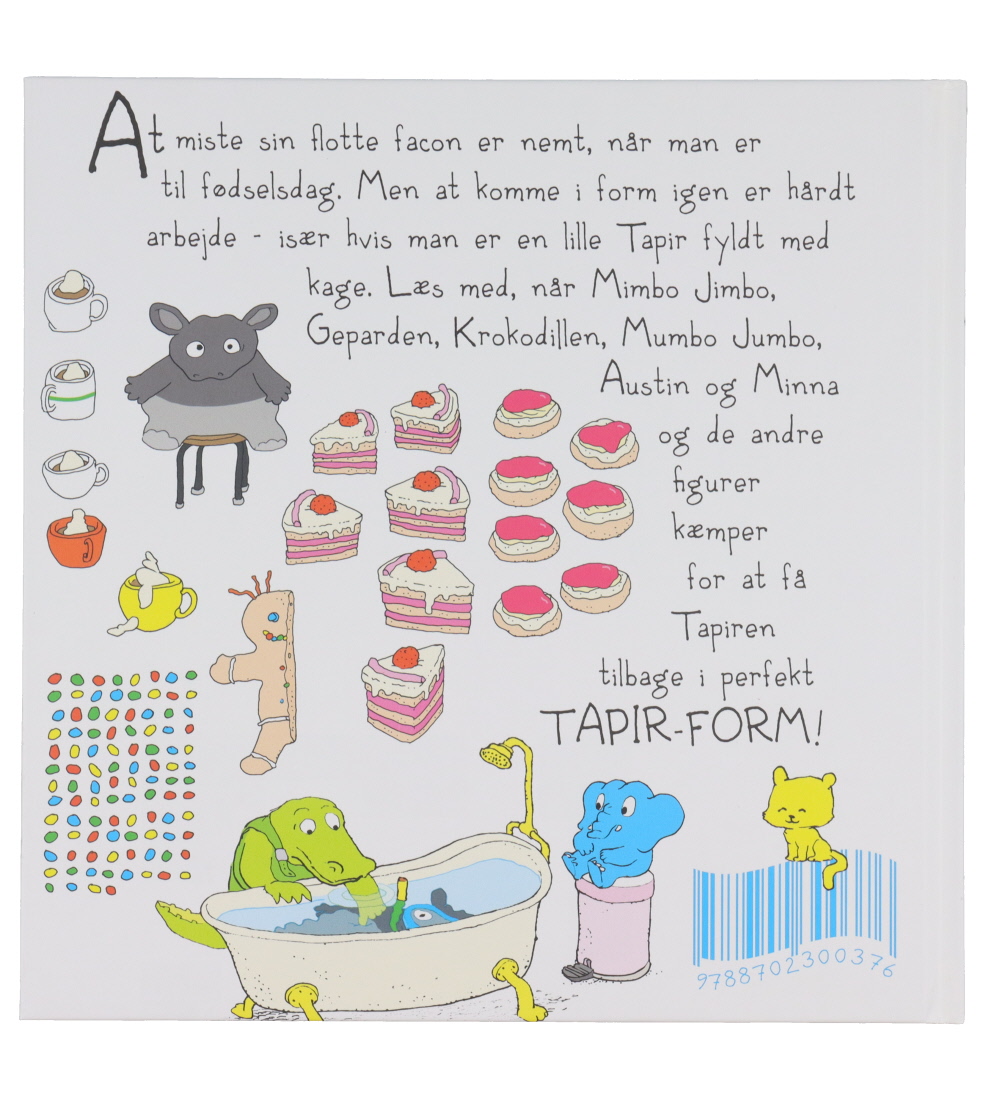 At miste sin flotte facon er nemt, når man er
til fødselsdag. Men at komme i form igen er hårdt
arbejde - især hvis man er en lille Tapir fyldt med
kage. Læs med, når Mimbo Jimbo,
Geparden, Krokodillen, Mumbo Jumbo,
Austin og Minna
og de andre
figurer
kæmper
for at få
Tapiren
tilbage i perfekt
TAPIR-FORM!
9788702300376